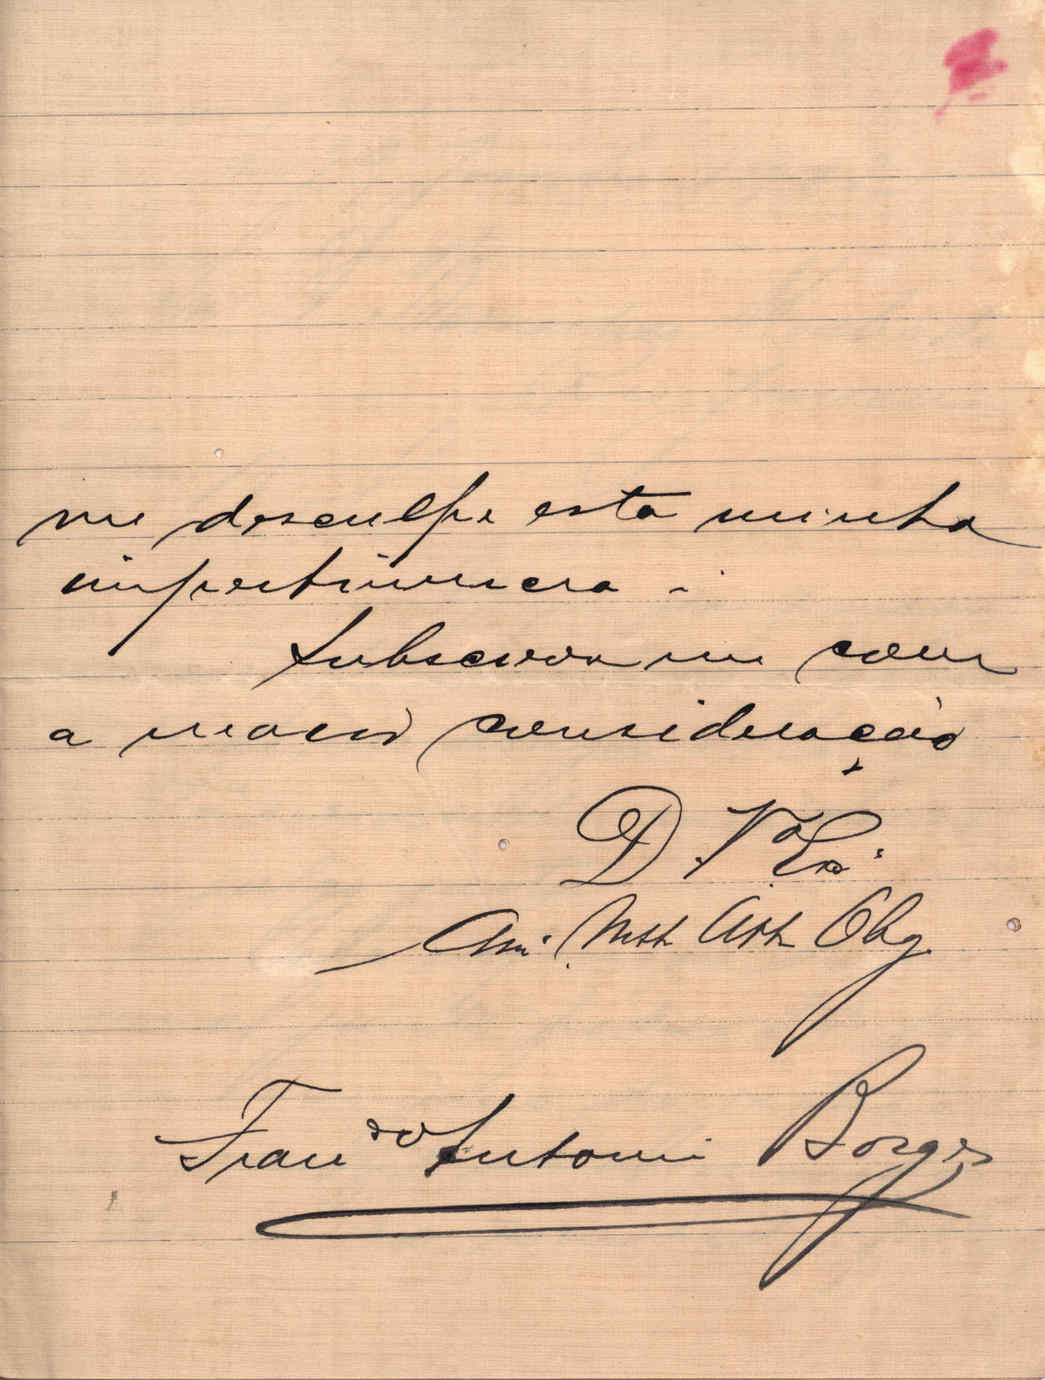 me desculpe esta minha
impertinencia.
Subscrevo me com
a maior consideração
D. V.ª Ex.ª
Am.º Mtt Att Obg.
Fran.co Antonio Borges